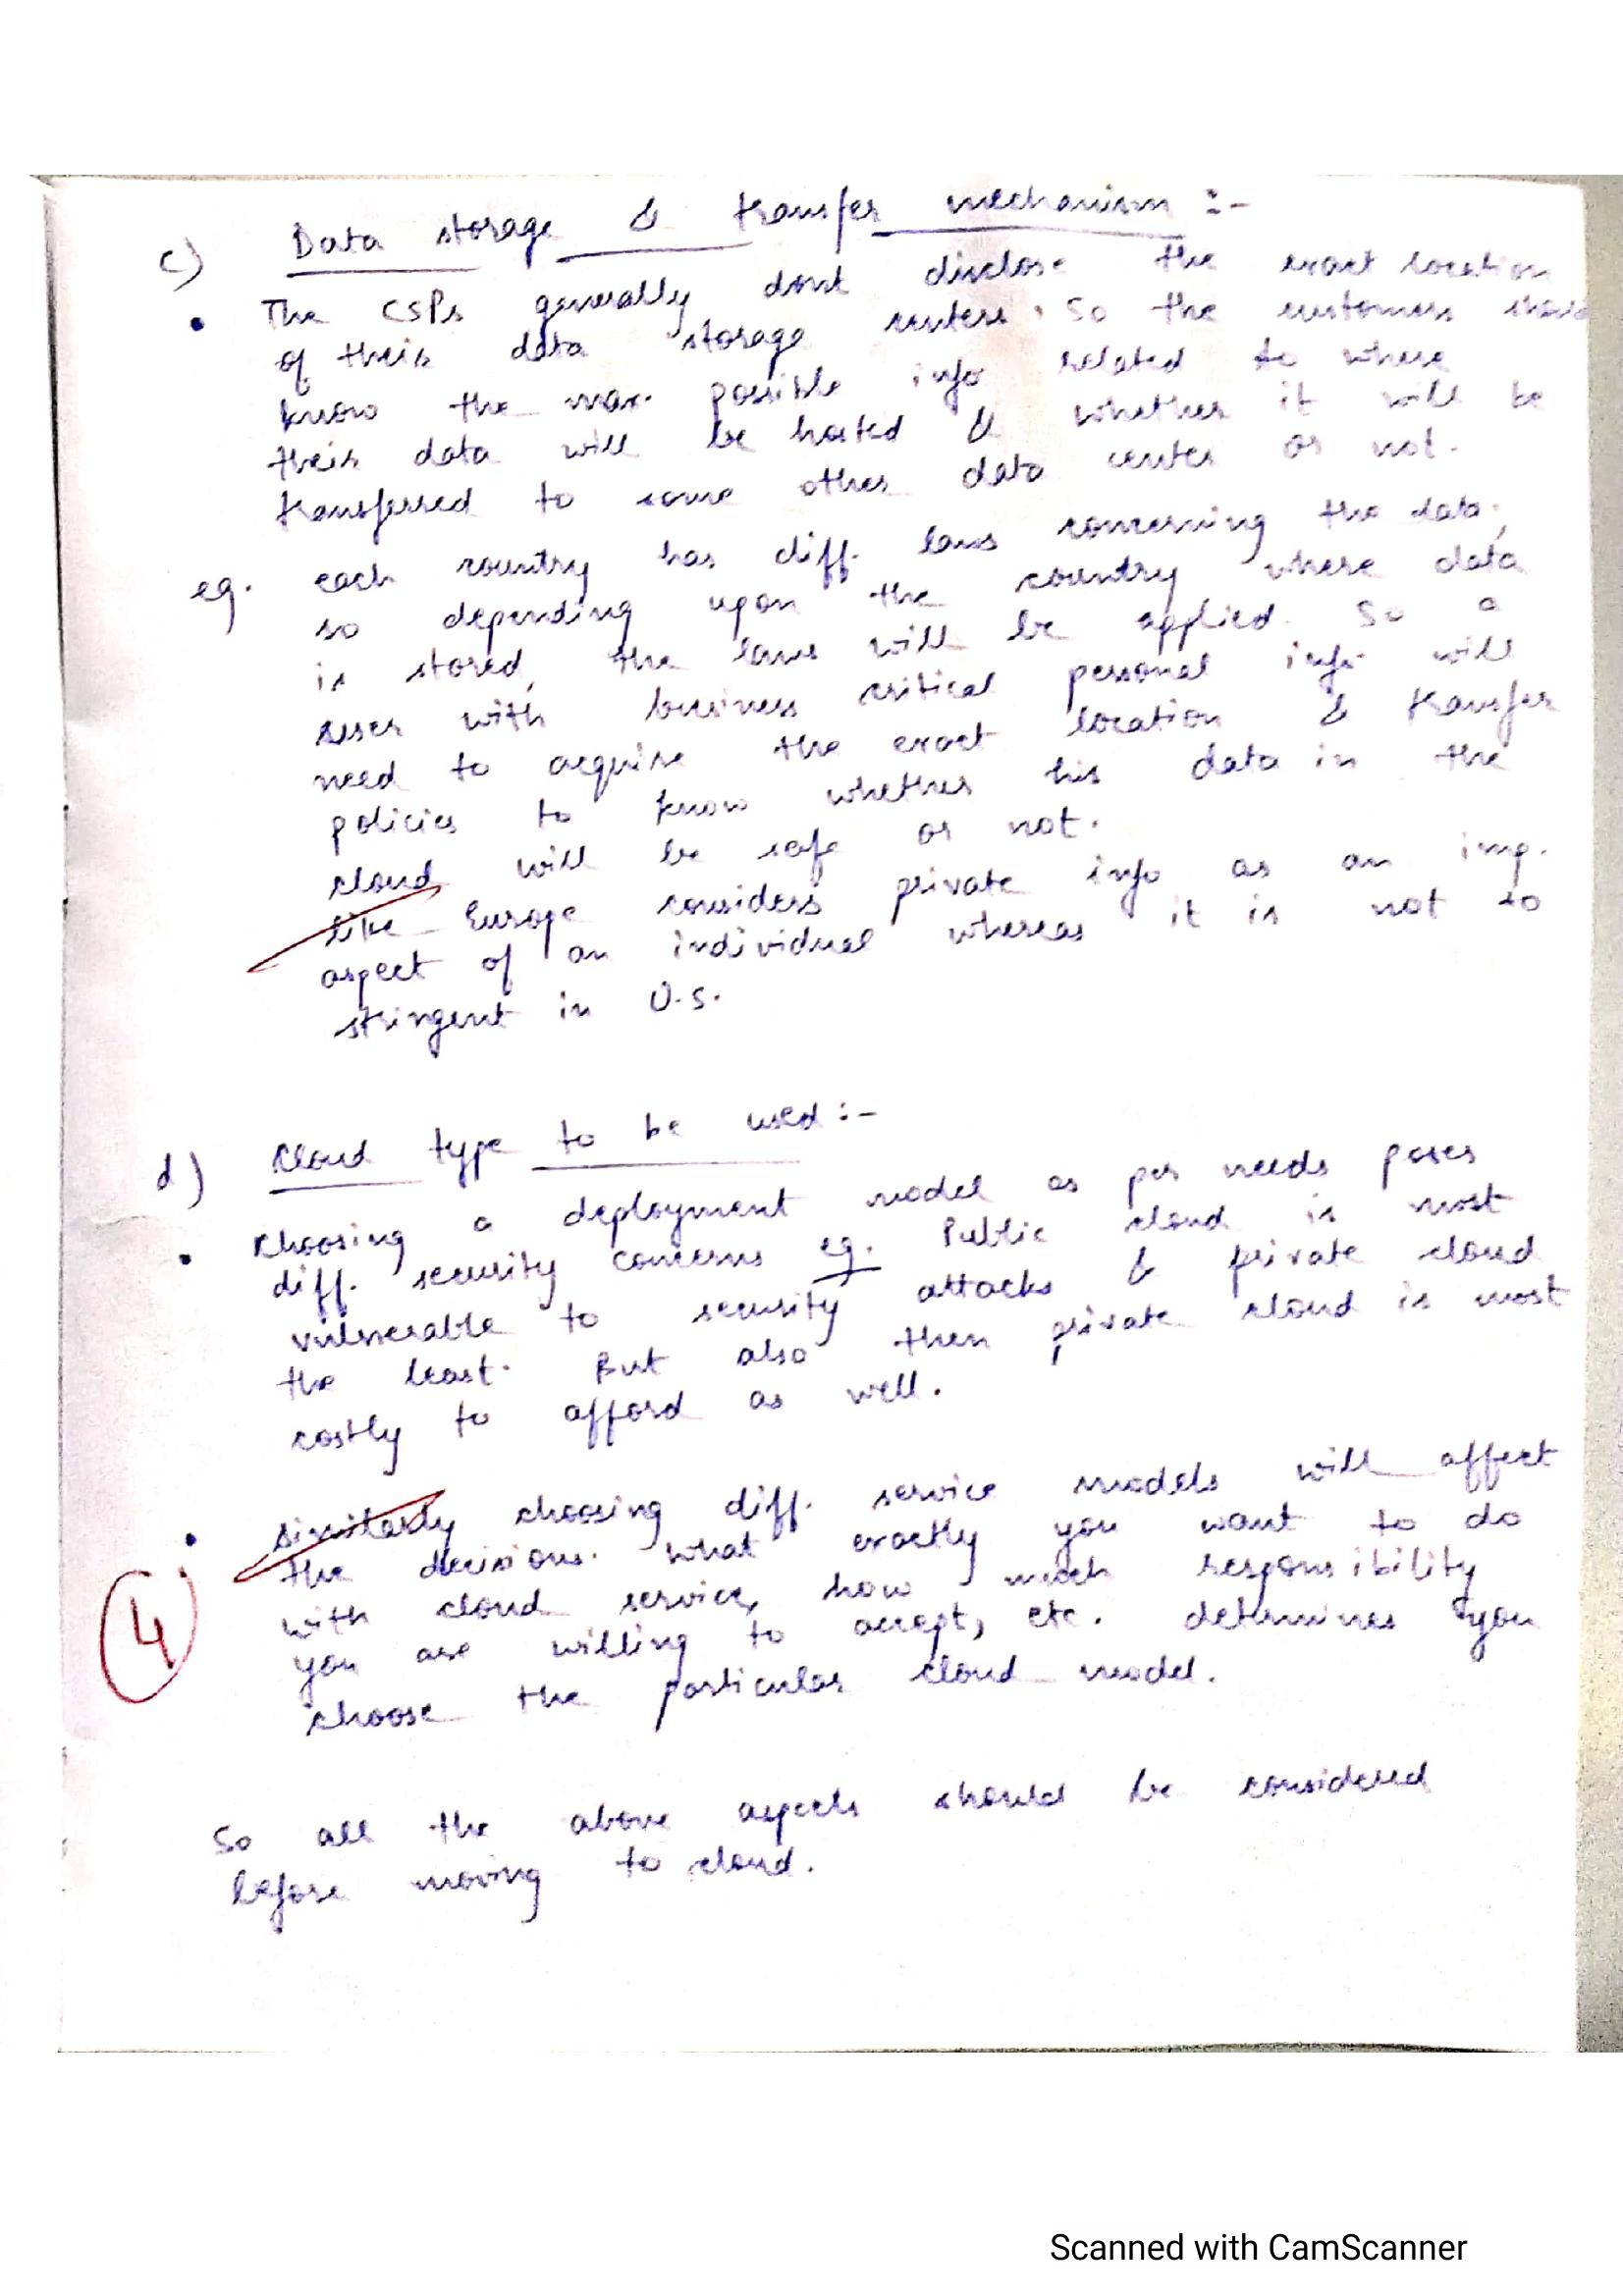 c) Data storage & transfer mechanism :-
• The CSPs generally dont disclose the exact location
of their data storage centers. So the customers should
know the max. possible info related to where
their data will be hosted & whether it will be
transferred to some other data center or not.
eg. each country has diff. laws concerning the data,
so depending upon the country where data
is stored, the laws will be applied. So a
user with business critical personal info will
need to acquire the exact location & transfer
policies to know whether his data in the
cloud will be safe or not.
like Europe considers private info as an imp.
aspect of an individual whereas it is not so
stringent in U.S.
d) Cloud type to be used :-
• Choosing a deployment model as per needs poses
diff. security concerns eg. Public cloud is most
vulnerable to security attacks & private cloud
the least. But also then private cloud is most
costly to afford as well.
• similarly choosing diff. service models will affect
the decisions. What exactly you want to do
with cloud service, how much responsibility
you are willing to accept, etc. determines you
4
choose the particular cloud model.
So all the above aspects should be considered
before moving to cloud.
Scanned with CamScanner